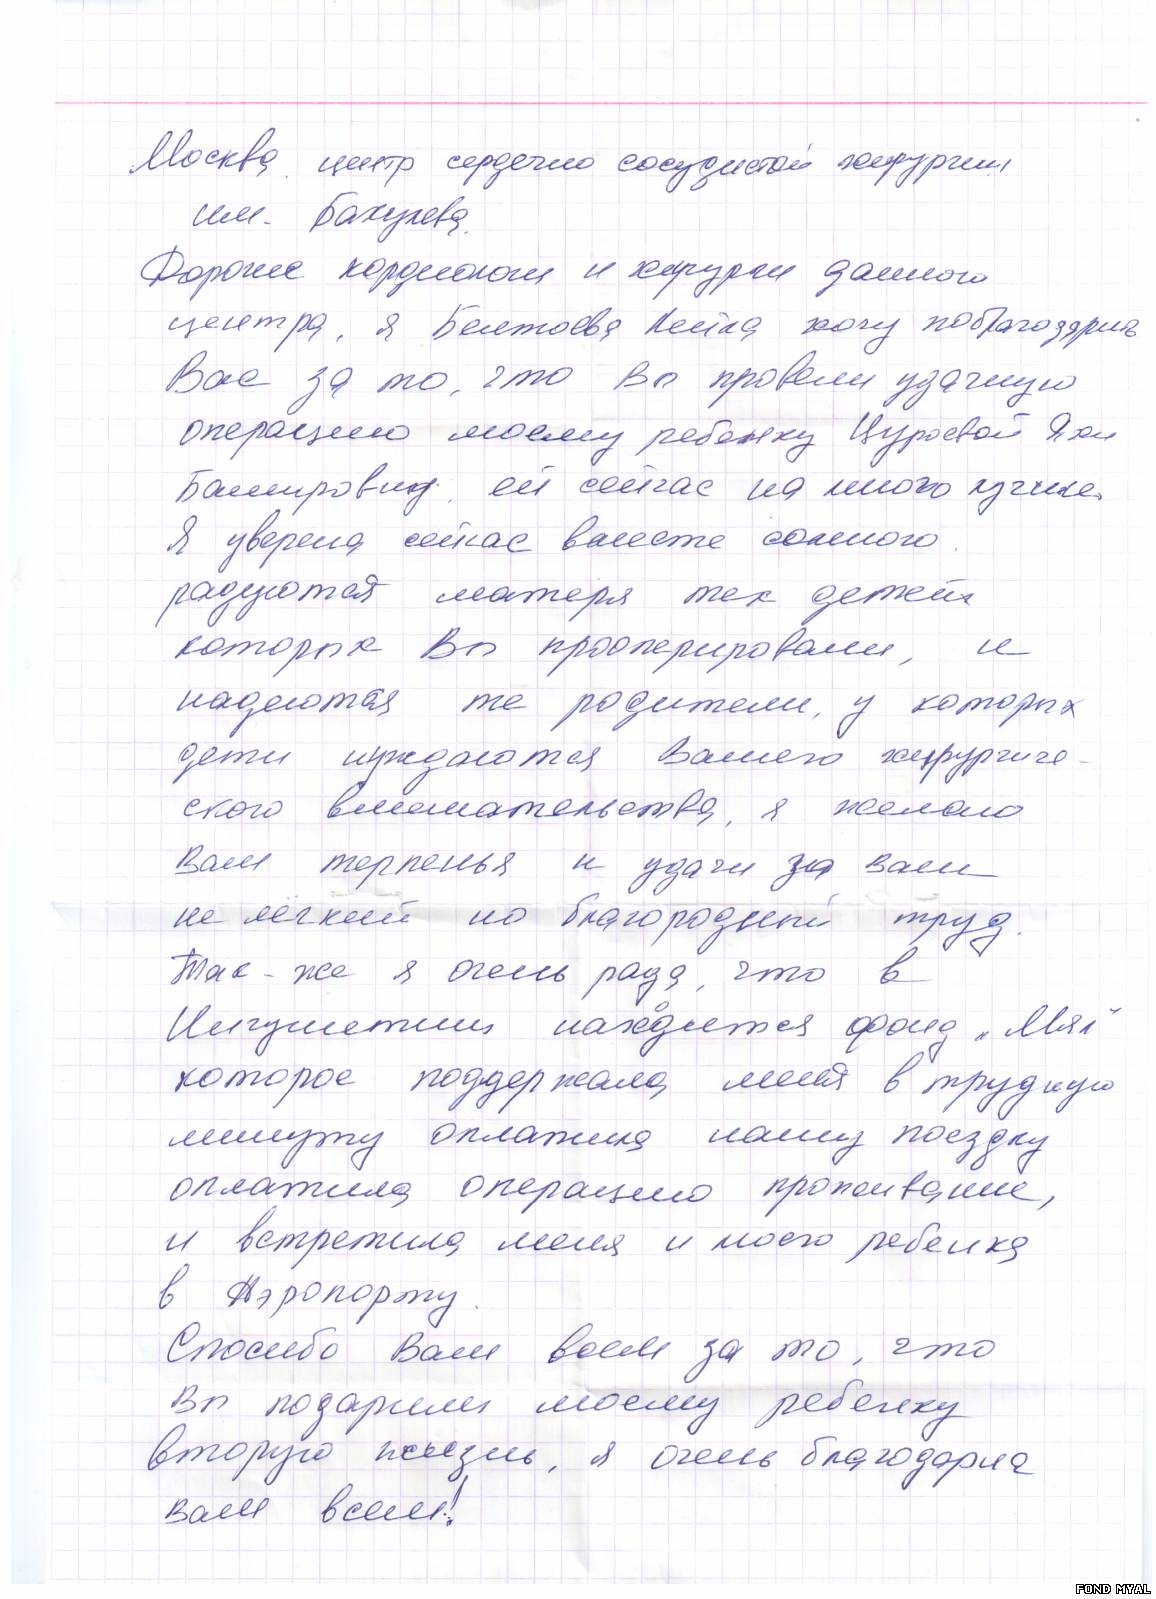 Москва центр сердечно сосудистой хирургии
им. Бакулева.
Дорогие кардиологи и хирурги данного
центра, я Белтоева хочу поблагодарить
Вас за то, что Вы провели удачную
операцию моему ребенку Цуроевой Яхи
Башировны, ей сейчас на много лучше.
Я уверена сейчас вместе сомного
радуются матеря тех детей
которых Вы прооперировали, и
надеются те родители, у которых
дети нуждаются Вашего хирургиче-
ского вмешательства, я желаю
Вам терпенья и удачи за ваш
не лёгкий но благородный труд.
Так-же я очень рада, что в
Ингушетии находится фонд „Мял"
которое поддержала меня в трудную
минуту оплатила нашу поездку
оплатила операцию проживание,
и встретила меня и моего ребенка
в Аэропорту.
Спасибо Вам всем за то, что
Вы подарили моему ребенку
вторую жизнь, я очень благодарна
вам всем!
FOND MYAL